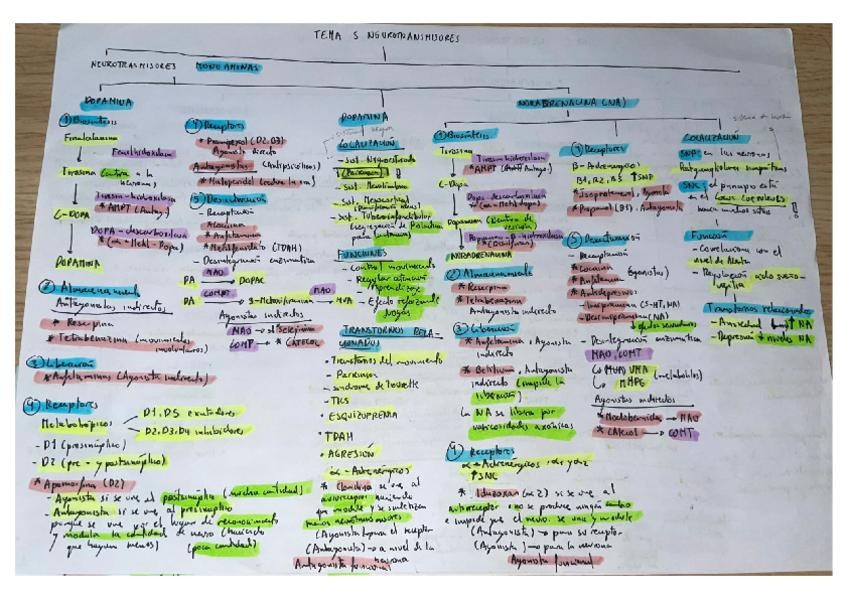 TEMA 5 NEUROTRANSMISORES
NEUROTRASMISORES MONOAMINAS
DOPAMINA
① Biosíntesis
Fenilalanina
Fenilhidroxilasa
Tirosina Entra a la
neurona
Tirosin-hidroxilasa
* AMPT (Antag.)
L-DOPA
DOPA-descarboxilasa
* (α-Metil-Dopa)
DOPAMINA
② Almacenamiento
Antagonistas indirectos
* Reserpina
* Tetrabenazina (movimientos
involuntarios)
③ Liberación
* Anfetaminas (Agonista indirecto)
④ Receptores
Metabotrópicos
D1, D5 excitadores
D2, D3, D4 inhibidores
- D1 (postsináptico)
- D2 (pre- y postsináptico)
* Apomorfina (D2)
- Agonista si se une al postsináptico (mucha cantidad)
- Antagonista si se une al presináptico
porque se une x el lugar de reconocimiento
y modula la cantidad de neuro (haciendo
que haya menos) (poca cantidad)
④ Receptores
* Pramipexol (D2, D3)
Agonista directo
Antagonistas (Antipsicóticos)
⑤ Desactivación
- Recaptación
* Cocaína
* Anfetamina
* Metilfenidato (TDAH)
- Desintegración enzimática
MAO
DA → DOPAC
COMT MAO
DA → 3-Metoxitiramina → HVA
Agonistas indirectos
MAO → * Selegilina
COMT → * CATECOL
DOPAMINA
LOCALIZACIÓN
- Sist. Nigroestriado
(Parkinson)
- Sist. Mesolímbico
- Sist. Mesocortical
- Sist. Tuberoinfundibular
(segregación de Prolactina
FUNCIONES
- Control movimiento
- Regular atención
- Aprendizaje
- Efecto reforzante
drogas
TRANSTORNOS RELA-
CIONADOS
- Transtornos del movimiento
- Parkinson
- síndrome de Tourette
- TICS
- ESQUIZOFRENIA
• TDAH
• AGRESIÓN
α-Adrenérgicos
* Clonidina se une al
autorreceptor haciendo
que module y se sinteticen
menos neurotransmisores
(Agonista) para el receptor
(Antagonista) → a nivel de la
neurona
Antagonista funcional
NORADRENALINA (NA)
① Biosíntesis
Tirosina
Tirosin-hidroxilasa
* AMPT (Antag.)
L-Dopa
Dopa-descarboxilasa
* (α-Metil-Dopa)
Dopamina (dentro de
vesícula)
Dopamina-β-hidroxilasa
NORADRENALINA
② Almacenamiento
* Reserpina
* Tetrabenazina
Antagonista indirecto
③ Liberación
* Anfetamina, Agonista
indirecto
* Bretilium, Antagonista
indirecto (impide la
liberación)
La NA se libera por
varicosidades axónicas
④ Receptores
α-Adrenérgicos α1 y α2
↑ SNC
* Idazoxan (α2) si se une al
autorreceptor no se produce ningún cambio
e impide que el neuro. se una y module
(Antagonista) → para su receptor
(Agonista) → para la neurona
Agonista funcional
④ Receptores
β-Adrenérgicos
B1, B2, B3 ↑ SNP
* Isoproterenol, Agonista
* Propanolol (B1), Antagonista
⑤ Desactivación
- Recaptación
* Cocaína
* Anfetamina (Agonistas)
* Antidepresivos
- Imipramina (5-HT, NA)
- Desimipramina (NA)
efectos secundarios
- Desintegración enzimática
MAO, COMT
MHPG (metabolitos)
Agonistas indirectos
* Moclobemida → MAO
* CATECOL → COMT
LOCALIZACIÓN
SNP: en las neuronas
Postganglionares simpáticas
SNC: el principal está
en el Locus Coeruleus
Función
- Correlaciona con el
nivel de Alerta
- Regulación ciclo sueño-
vigilia
Transtornos relacionados
- Ansiedad ↑ NA
- Depresión niveles NA